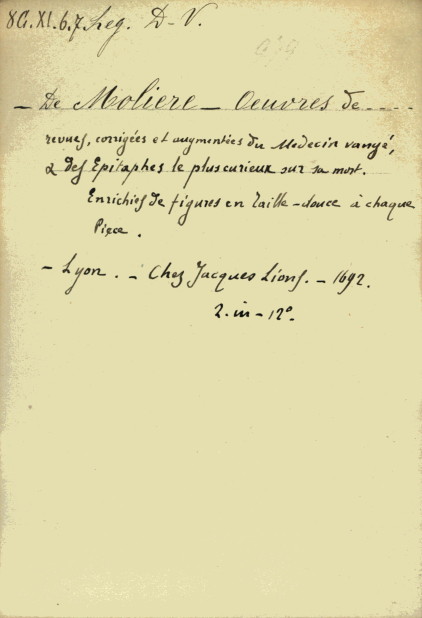 8G.XI.6.7 Leg. D-V.
— De Moliere — Oeuvres de ----
revues, corrigées et augmentées du Medecin vangé,
& des Epitaphes le plus curieux sur sa mort.
Enrichies de figures en Taille-douce à chaque
Piece.
— Lyon. — Chez Jacques Lions. — 1692.
2. in-12º.